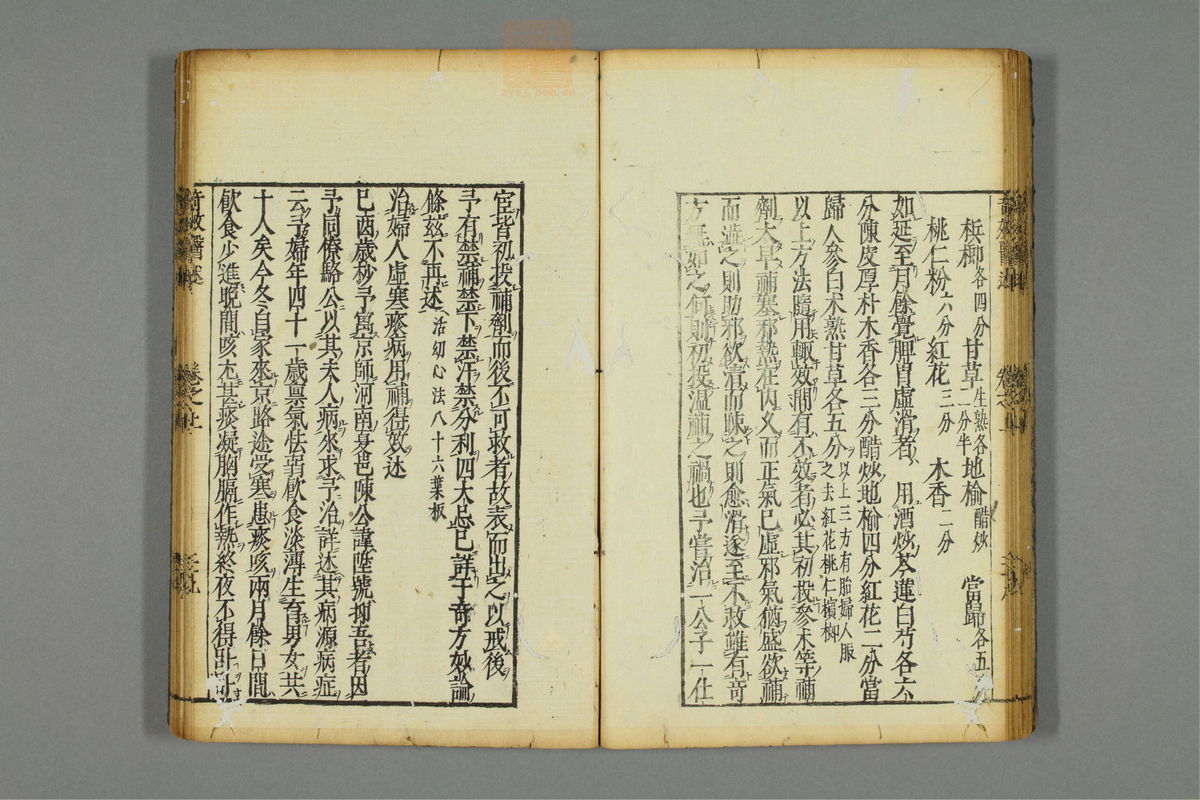 梹榔各四分甘草生熟各二分半地榆醋炒 當歸各五分
桃仁粉六分紅花三分 木香二分
如延至月餘覺脾胃虛滑者 用酒炒芩連白芍各六
分陳皮厚朴木香各三分醋炒地榆四分紅花二分當
歸人參白朮熟甘草各五分以上三方有胎婦人服之去紅花桃仁檳榔
以上方法隨用輙效間有不效者必其初投參朮等補
劑太早補塞邪熱在內久而正氣已虛邪氣猶盛欲補
而澁之則助邪欲清而踈之則愈滑遂至不救雖有奇
方無如之何則初投溫補之禍也予嘗治一公子一仕
宦皆初投補劑而後不可救者故表而出之以戒後
予有禁補禁下禁汗禁分利四大忌已詳于奇方妙論
條茲不再述活幼心法八十六葉板
治婦人虛寒痰病用補得效述
巳酉歲杪予寓京師河南夏邑陳公諱陞號抑吾者因
予同僚駱公以其夫人病來求予治詳述其病源病症
云予婦年四十一歲禀氣怯弱飮食淡薄生育男女共
十人矣今冬自家來京路途受寒患痰咳兩月餘日間
飮食少進晩間咳尤甚痰凝胸膈作熱終夜不得卧
奇效醫述
卷之上